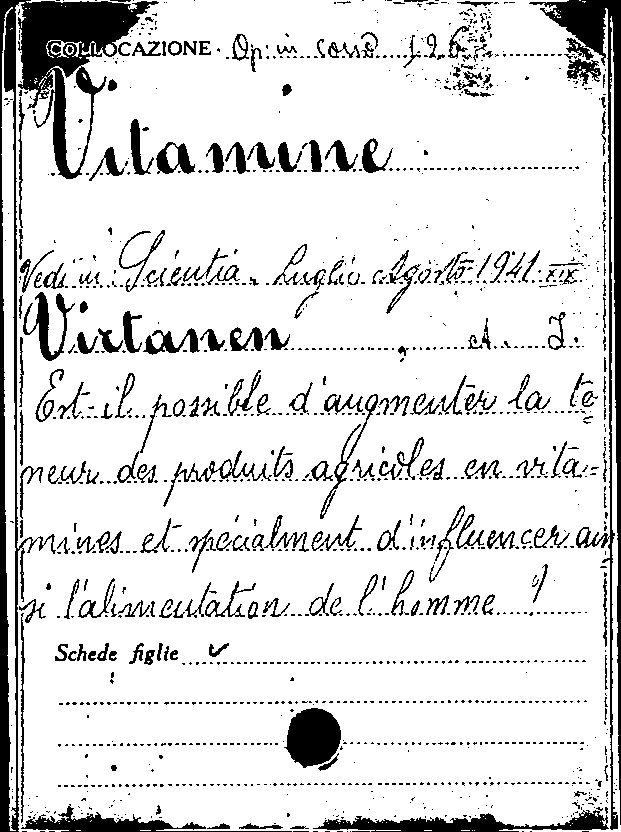 COLLOCAZIONE. Op. in corso 126
Vitamine.
Vedi in: Scientia. Luglio Agosto 1941. XIX
Virtanen, A. I.
Est-il possible d'augmenter la te=
neur des produits agricoles en vita=
mines et spécialment d'influencer ain=
si l'alimentation de l'homme ?
Schede figlie ✓